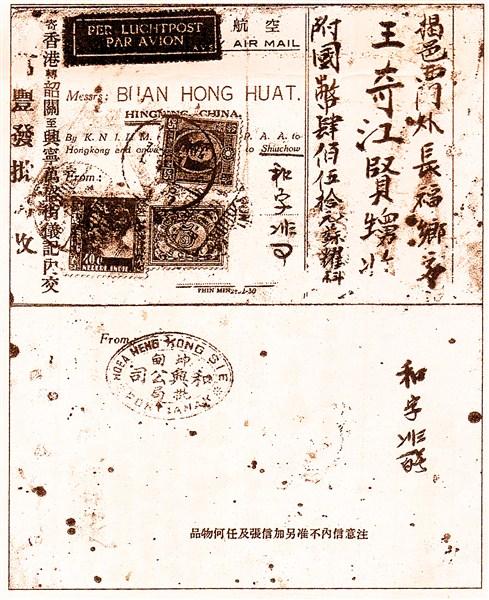 揭邑西門外長福鄉交
王奇江賢甥收
附國幣肆佰伍拾元蘇
和字
PER LUCHTPOST
PAR AVION
航空
AIR MAIL
Messrs: BUAN HONG HUAT.
HINGNING, CHINA.
By K. N. I. L. M. P. A. A. to
Hongkong and to Shiuchow
From:
寄香港轉韶關至興寧萬盛街儀記內交
豐發 收
40 CT
NEDERL INDIE
PHIN MIN
From:
HENG KONG SIE
PONTIANAK
坤甸
興
和公司
和字
注意信內不准另加信張及任何物品